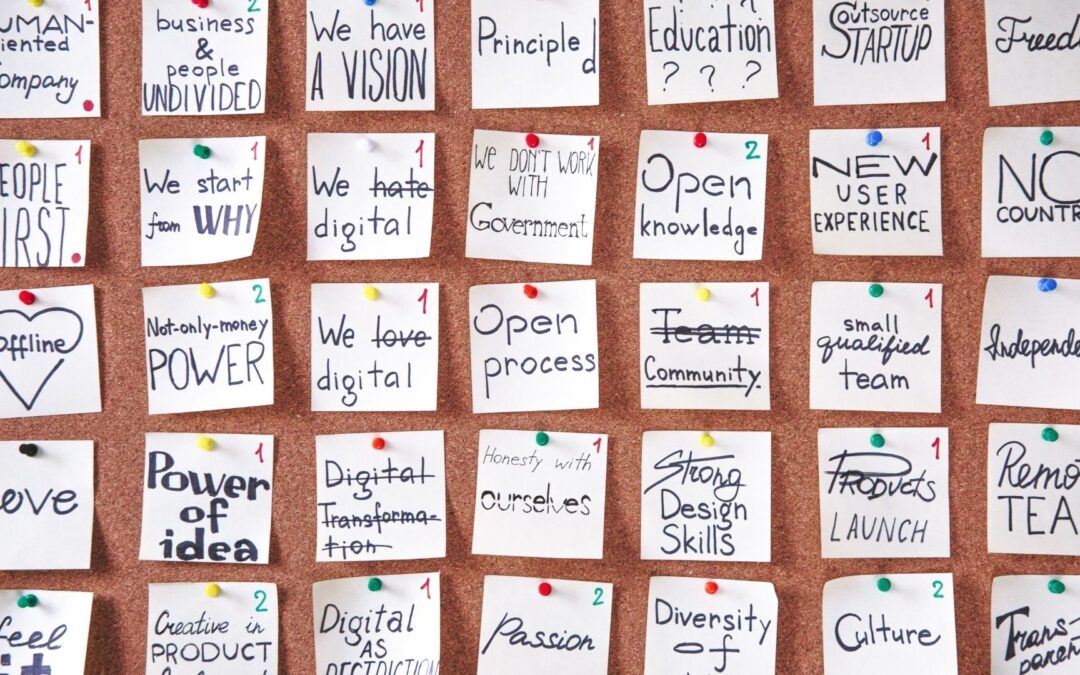 -UMAN-
-iented
-ompany
business
&
people
UNDIVIDED
2
We have
A VISION
1
Principled
Education
? ? ?
Outsource
STARTUP
Freed-
-EOPLE
-IRST
1
We start
from WHY
1
We hate
digital
1
We DON'T WORK
WITH
Government
1
Open
knowledge
2
NEW
USER
EXPERIENCE
1
NO
COUNTR-
offline
Not-only-money
POWER
2
We love
digital
1
Open
process
Team
Community.
1
small
qualified
team
1
Independe-
-ove
Power
of
idea
1
Digital
Transforma-
tion
Honesty with
ourselves
1
Strong
Design
Skills
Products
LAUNCH
1
Remo-
TEA-
feel
it
Creative in
PRODUCT
2
Digital
AS
1
Passion
2
Diversity
of
Culture
2
Trans-
paren-